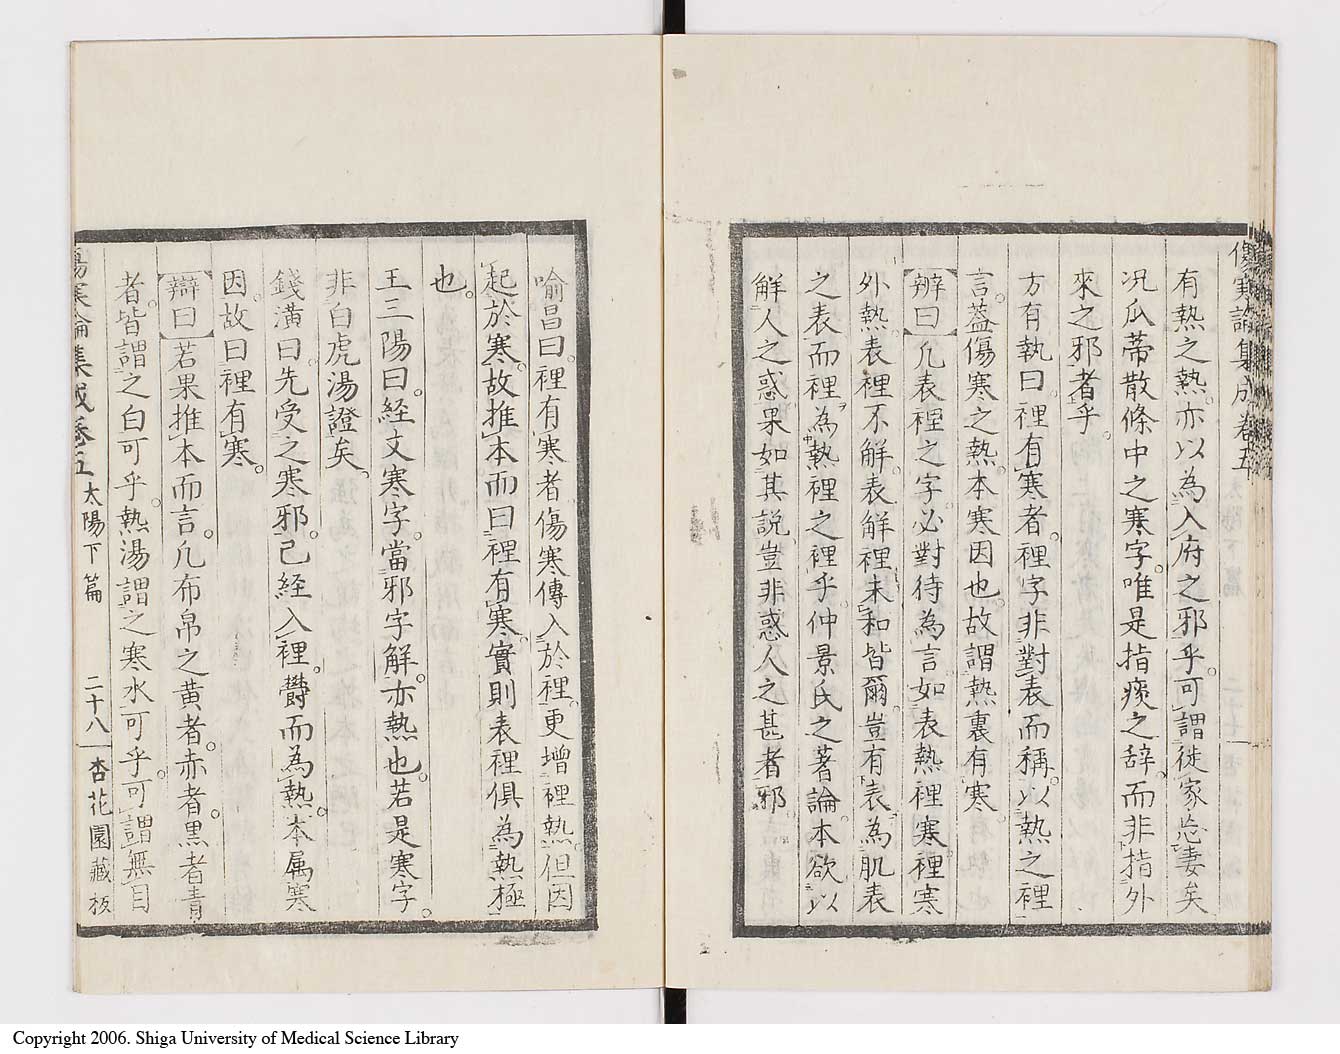 傷寒論集成卷五
有熱之熱。亦以為入府之邪乎。可謂徙家忘妻矣
況瓜蒂散條中之寒字。唯是指痰之辞。而非指外
來之邪者乎。
方有執曰。裡有寒者。裡字非對表而稱。以熱之裡
言。蓋傷寒之熱。本寒因也。故謂熱裏有寒。
辨曰凡表裡之字。必對待為言。如表熱裡寒。裡寒
外熱。表裡不解。表解裡未和皆爾。豈有表為肌表
之表。而裡為熱裡之裡乎。仲景氏之著論。本欲以
解人之惑。果如其說。豈非惑人之甚者邪。
喻昌曰。裡有寒者。傷寒傳入於裡。更增裡熱。但因
起於寒。故推本而曰裡有寒。實則表裡俱為熱極
也。
王三陽曰。經文寒字。當邪字解。亦熱也。若是寒字。
非白虎湯證矣。
錢潢曰。先受之寒邪。已經入裡。欝而為熱。本属寒
因。故曰裡有寒。
辯曰若果推本而言。凡布帛之黄者。赤者。黒者青
者。皆謂之白可乎。熱湯謂之寒水可乎。可謂無目
傷寒論集成卷五 太陽下篇 二十八 杏花園藏板
Copyright 2006. Shiga University of Medical Science Library